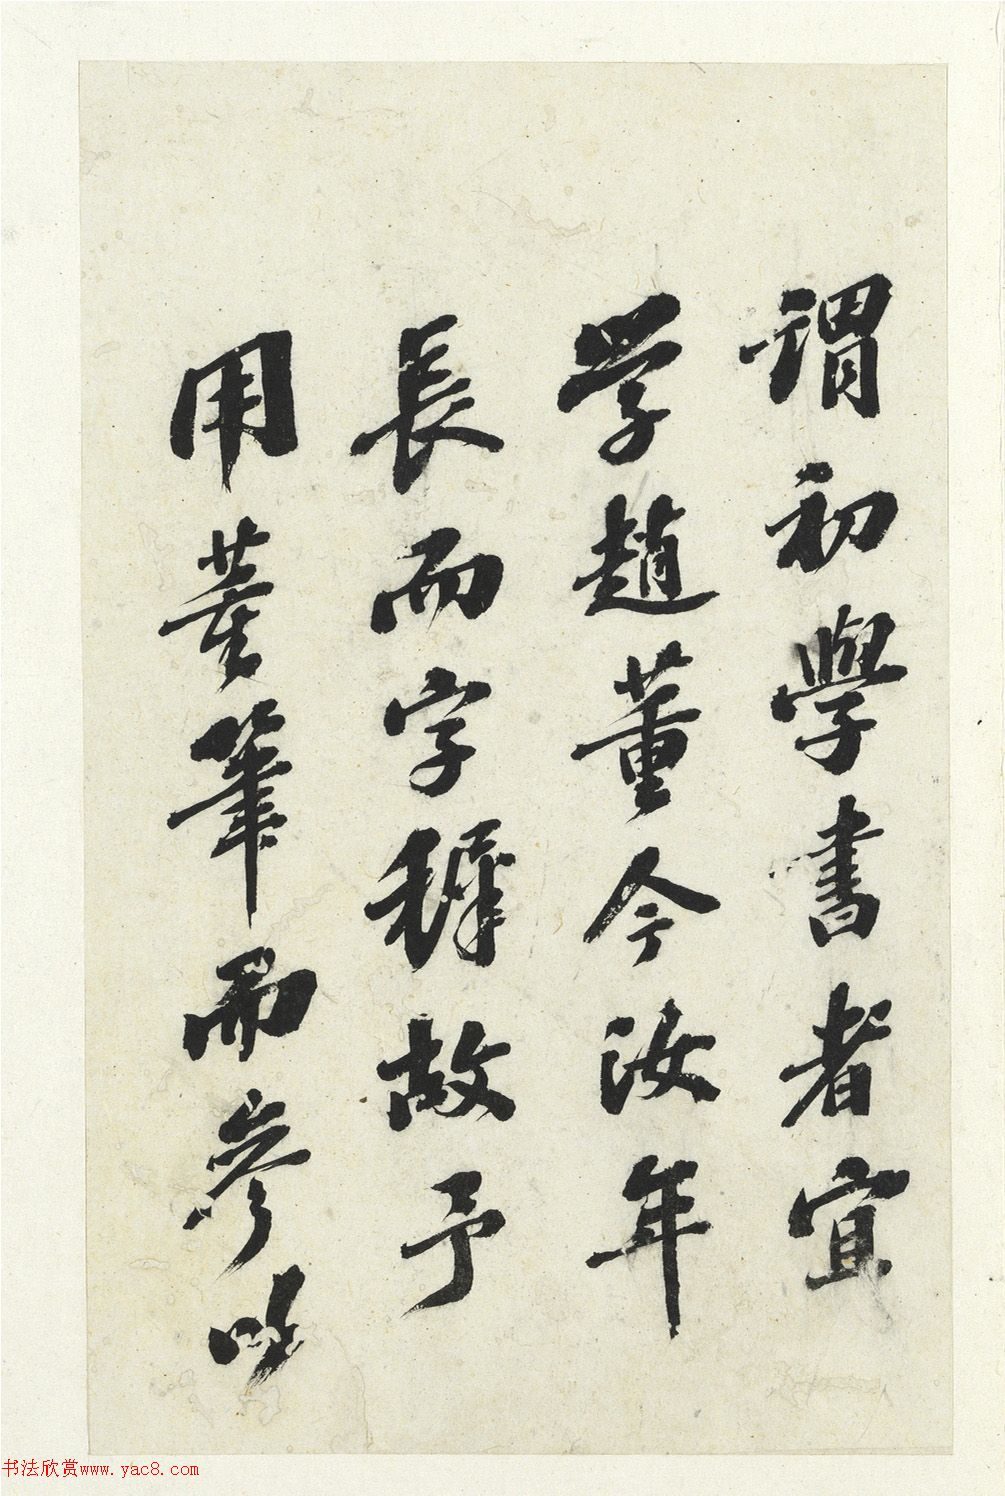 謂初學書者宜
学趙董今汝年
長而字穉故予
用董筆而參以
书法欣赏www.yac8.com